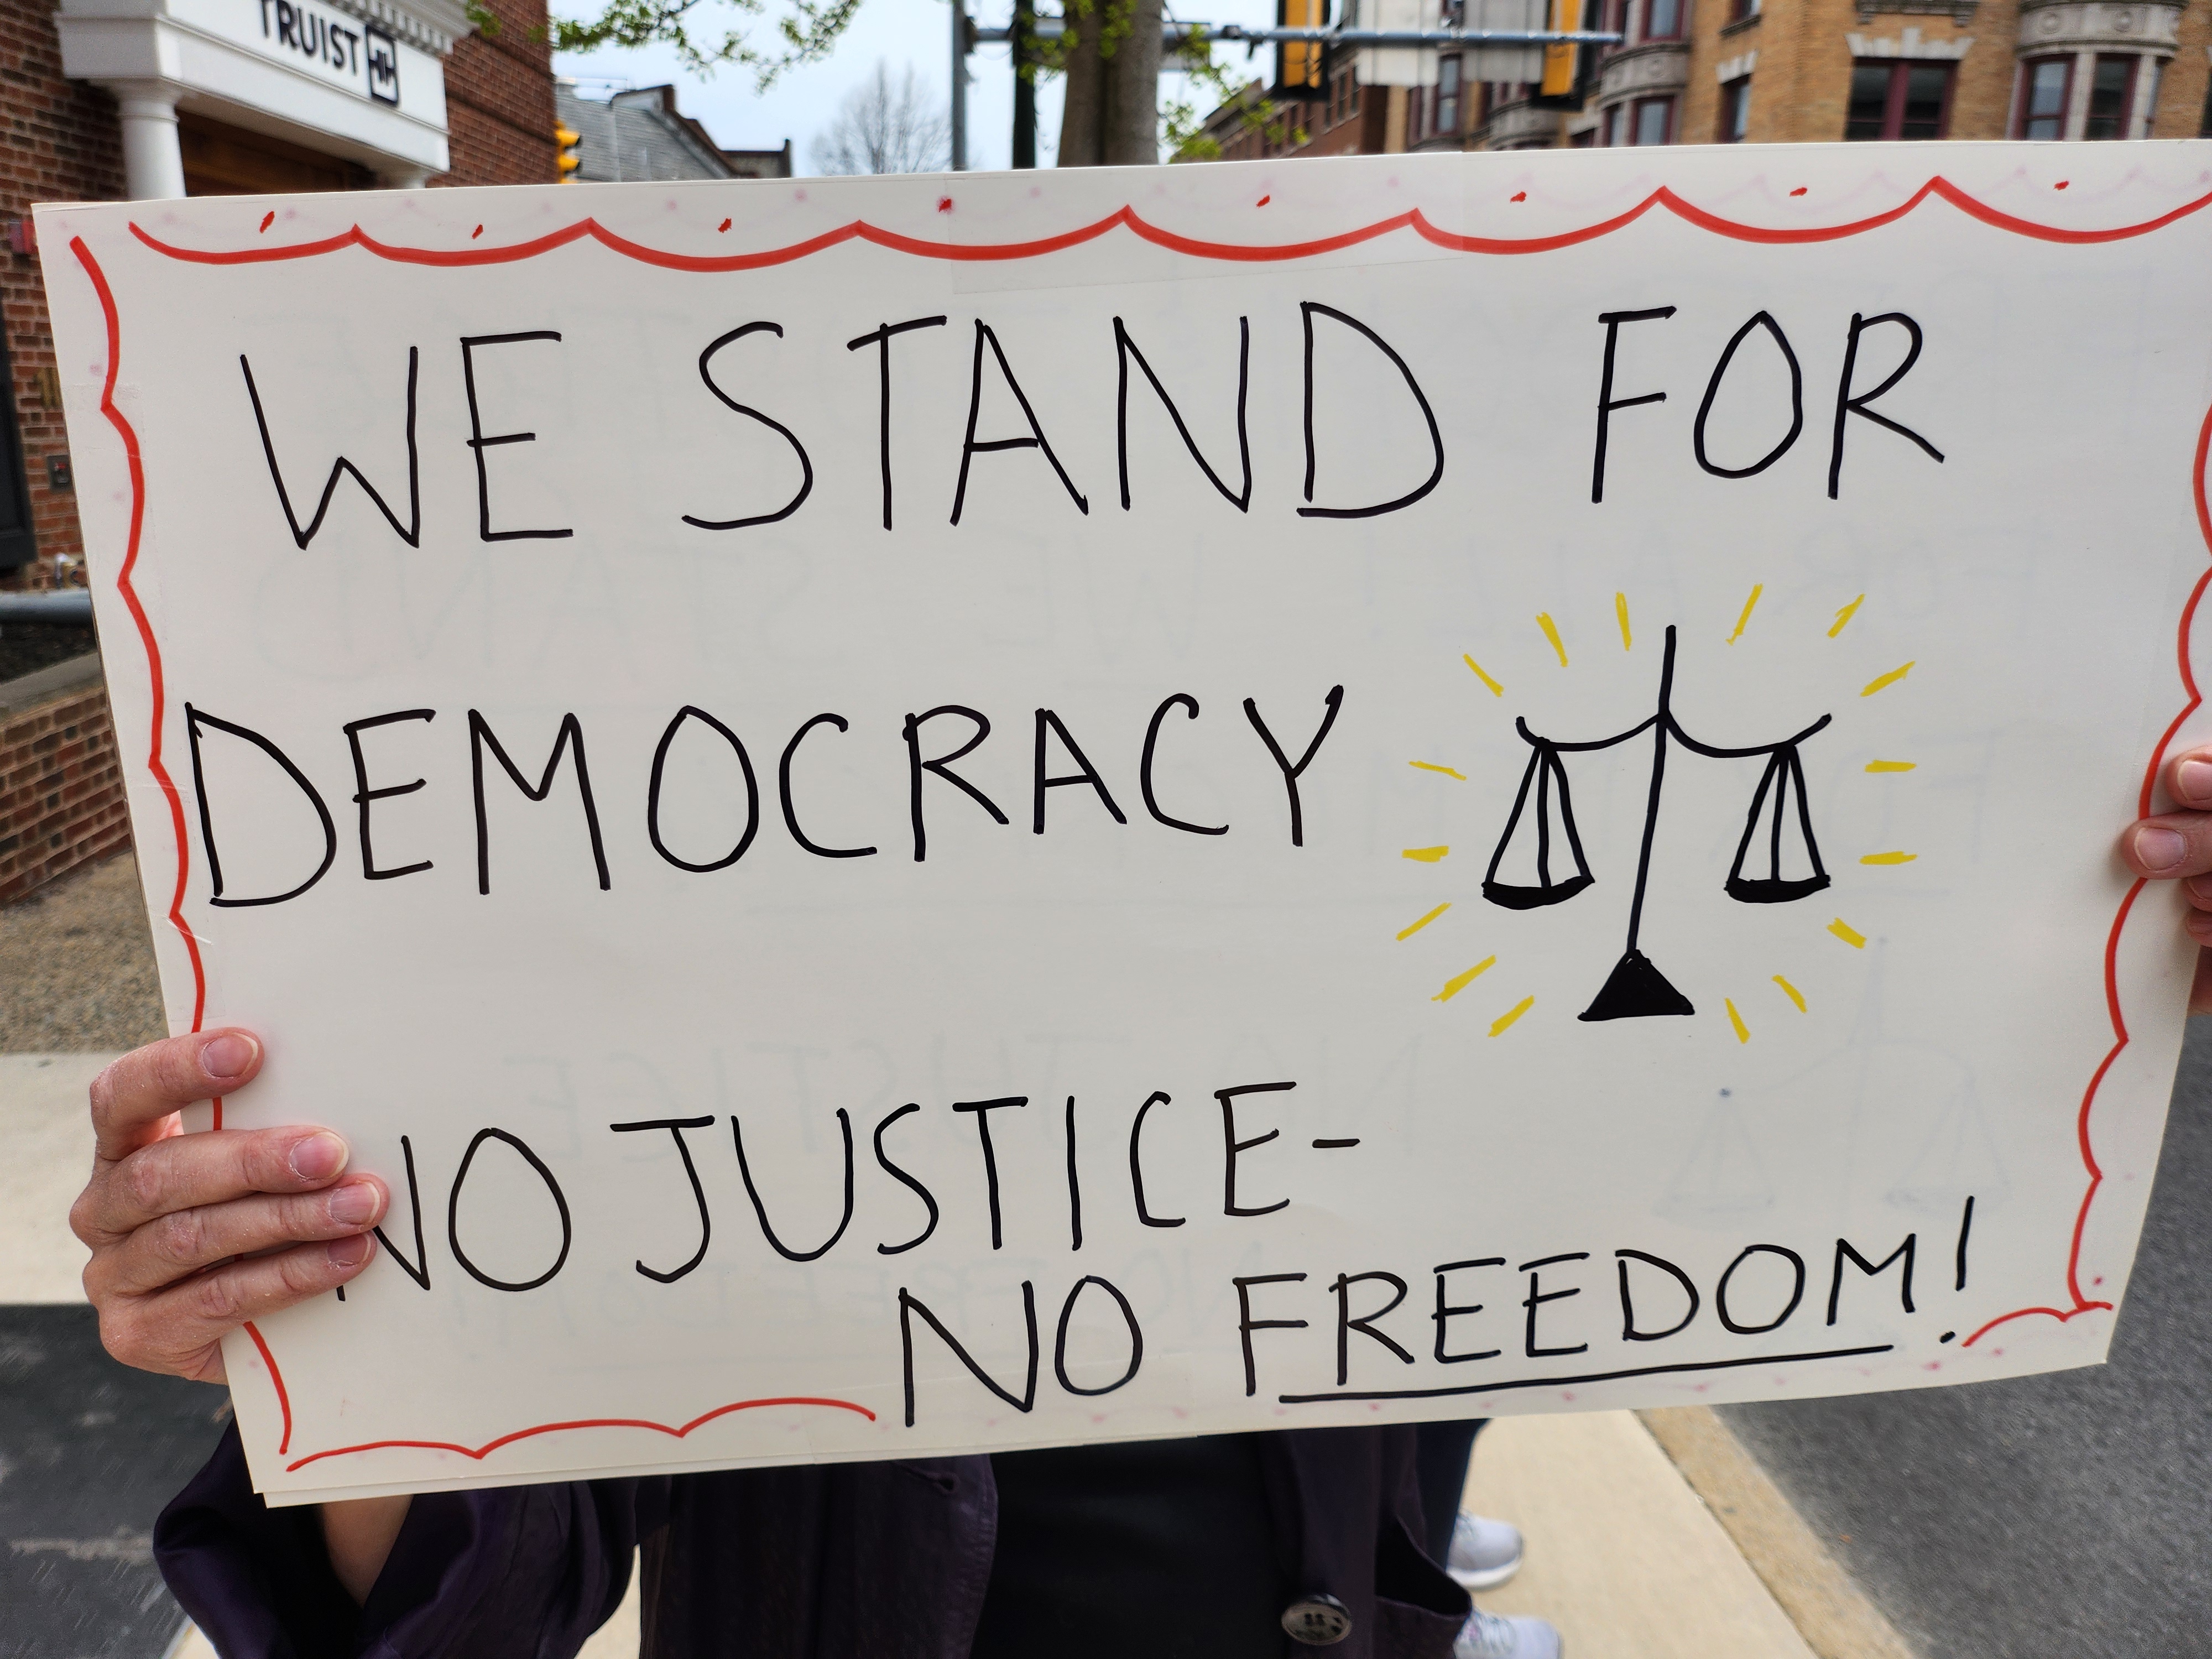 TRUIST
WE STAND FOR
DEMOCRACY
NO JUSTICE-
NO FREEDOM!